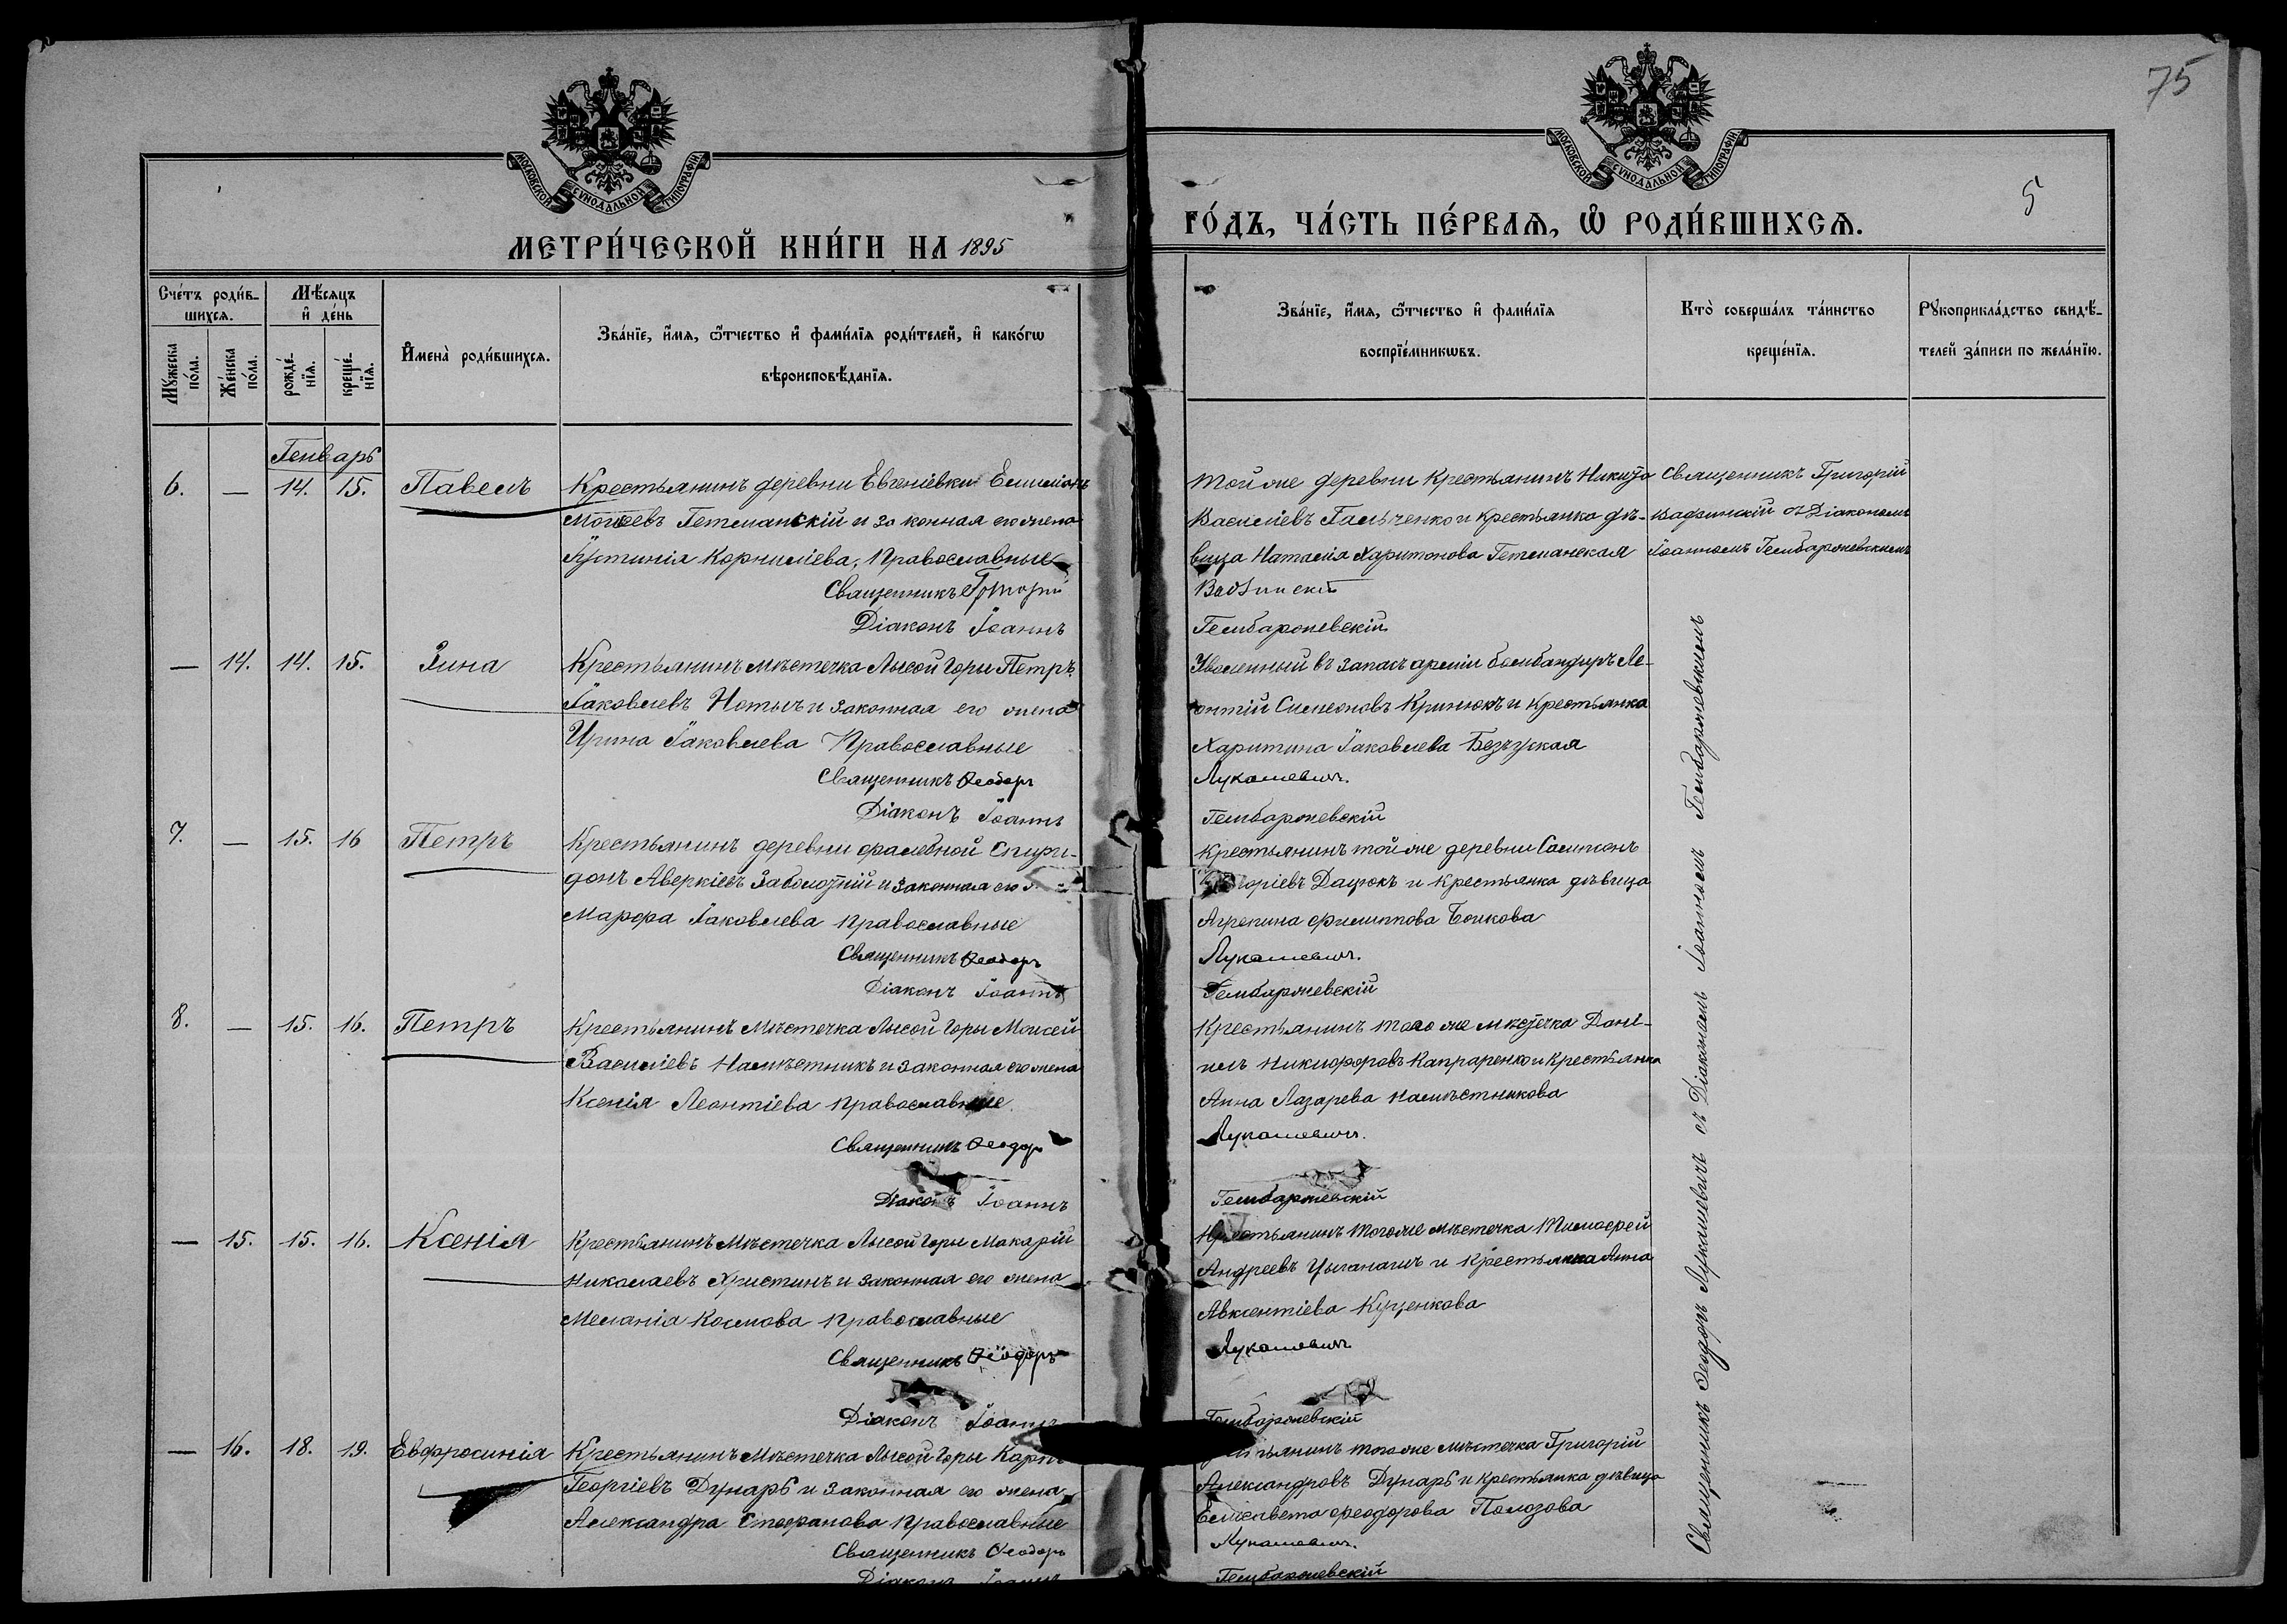 75
МОСКОВСКОЙ СУНОДАЛЬНОЙ ТИПОГРАФІИ
МОСКОВСКОЙ СУНОДАЛЬНОЙ ТИПОГРАФІИ
5
МЕТРИ́ЧЕСКОЙ КНИ́ГИ НА 1895
ГО́ДЪ, ЧА́СТЬ ПЕ́РВАЯ, Ѽ РОДИ́ВШИХСЯ.
Сче́тъ роди́в-
шихся.
Мѣ́сяцъ
и де́нь
Му́жеска по́ла.
Же́нска по́ла.
рожде́-
нїя.
креще́-
нїя.
Имена̀ роди́вшихся.
Зва́нїе, и́мя, ѻ́тчество и фами́лїя роди́телей, и како́гѡ
вѣроисповѣ́данїя.
Зва́нїе, и́мя, ѻ́тчество и фами́лїя
воспрїе́мникѡвъ.
Кто̀ соверша́лъ та́инство
креще́нїя.
Рꙋкоприкла́дство свидѣ́-
телей за́писи по жела́нїю.
Генварь
6. — 14. 15. Павелъ
Крестьянинъ деревни Евгеніевки Емиліанъ
Моѵсеевъ Гетманскій и законная его жена
Іустинія Корниліева, Православные
Священникъ Григорій
Діаконъ Іоаннъ
Тойже деревни крестьянинъ Никита
Василіевъ Гальченко и крестьянка дѣ-
вица Наталія Харитонова Гетманская
Гембаржевскій
Священникъ Григорій
съ Діакономъ
Іоанномъ Гембаржевскимъ
— 14. 14. 15. Зина
Крестьянинъ мѣстечка Лысой Горы Петръ
Іаковлевъ и законная его жена
Ирина Іаковлева Православные
Священникъ Ѳеодоръ
Діаконъ Іоаннъ
Уволенный въ запасъ арміи бомбандиръ Ле-
онтій Симеоновъ Кринюкъ и крестьянка
Харитина Іаковлева
Лукашевичъ.
Гембаржевскій
7. — 15. 16 Петръ
Крестьянинъ деревни Спири-
донъ Аверкіевъ Заболотній и законная его
Марфа Іаковлева православные
Священникъ Ѳеодоръ
Діаконъ Іоаннъ
Крестьянинъ тойже деревни Сампсонъ
Дацюкъ и крестьянка дѣвица
Агрепина Филиппова Бойкова
Лукашевичъ.
Гембаржевскій
8. — 15. 16. Петръ
Крестьянинъ мѣстечка Лысой Горы Моисей
Василіевъ Намѣстникъ и законная его жена
Ксенія Леонтіева православные
Священникъ Ѳеодоръ
Діаконъ Іоаннъ
Крестьянинъ того же мѣстечка Дані-
илъ Никифоровъ Капраренко и крестьянка
Анна Лазарева Намѣстникова
Лукашевичъ.
Гембаржевскій
— 15. 15. 16. Ксенія
Крестьянинъ мѣстечка Лысой Горы Макарій
Николаевъ Христинъ и законная его жена
Меланія Космова православные
Священникъ Ѳеодоръ
Діаконъ Іоаннъ
Крестьянинъ тогоже мѣстечка Тимофей
Андреевъ и крестьянка Анна
Авксентіева Куценкова
Лукашевичъ
Гембаржевскій
— 16. 18. 19. Евфросинія
Крестьянинъ мѣстечка Лысой Горы Карпъ
Георгіевъ Дунарь и законная его жена
Александра Стефанова православные
Священникъ Ѳеодоръ
Діаконъ Іоаннъ
Крестьянинъ тогоже мѣстечка Григорій
Александровъ Дунарь и крестьянка дѣвица
Елисавета Феодорова Полозова
Лукашевичъ.
Гембаржевскій
Священникъ Ѳеодоръ Лукашевичъ съ Діакономъ Іоанномъ Гембаржевскимъ